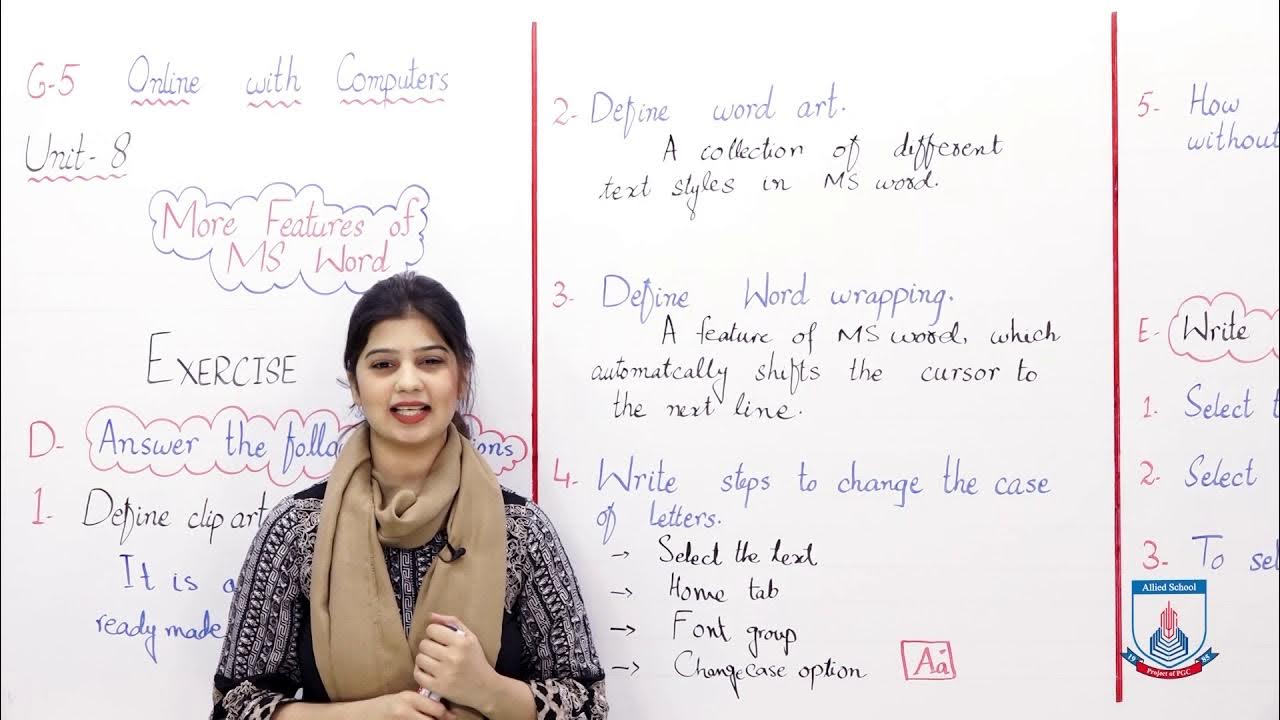 G-5 Online with Computers
Unit-8
More Features of
MS Word
EXERCISE
D- Answer the
1- Define clip art
It is a
ready made
2- Define word art.
A collection of different
text styles in MS word.
3- Define Word wrapping.
A feature of MS word, which
automatcally shifts the cursor to
the next line.
4- Write steps to change the case
of letters.
→ Select the text
→ Home tab
→ Font group
→ Changecase option Aa
5- How
without
E- Write
1. Select
2. Select
3- To
Allied School
Project of PGC